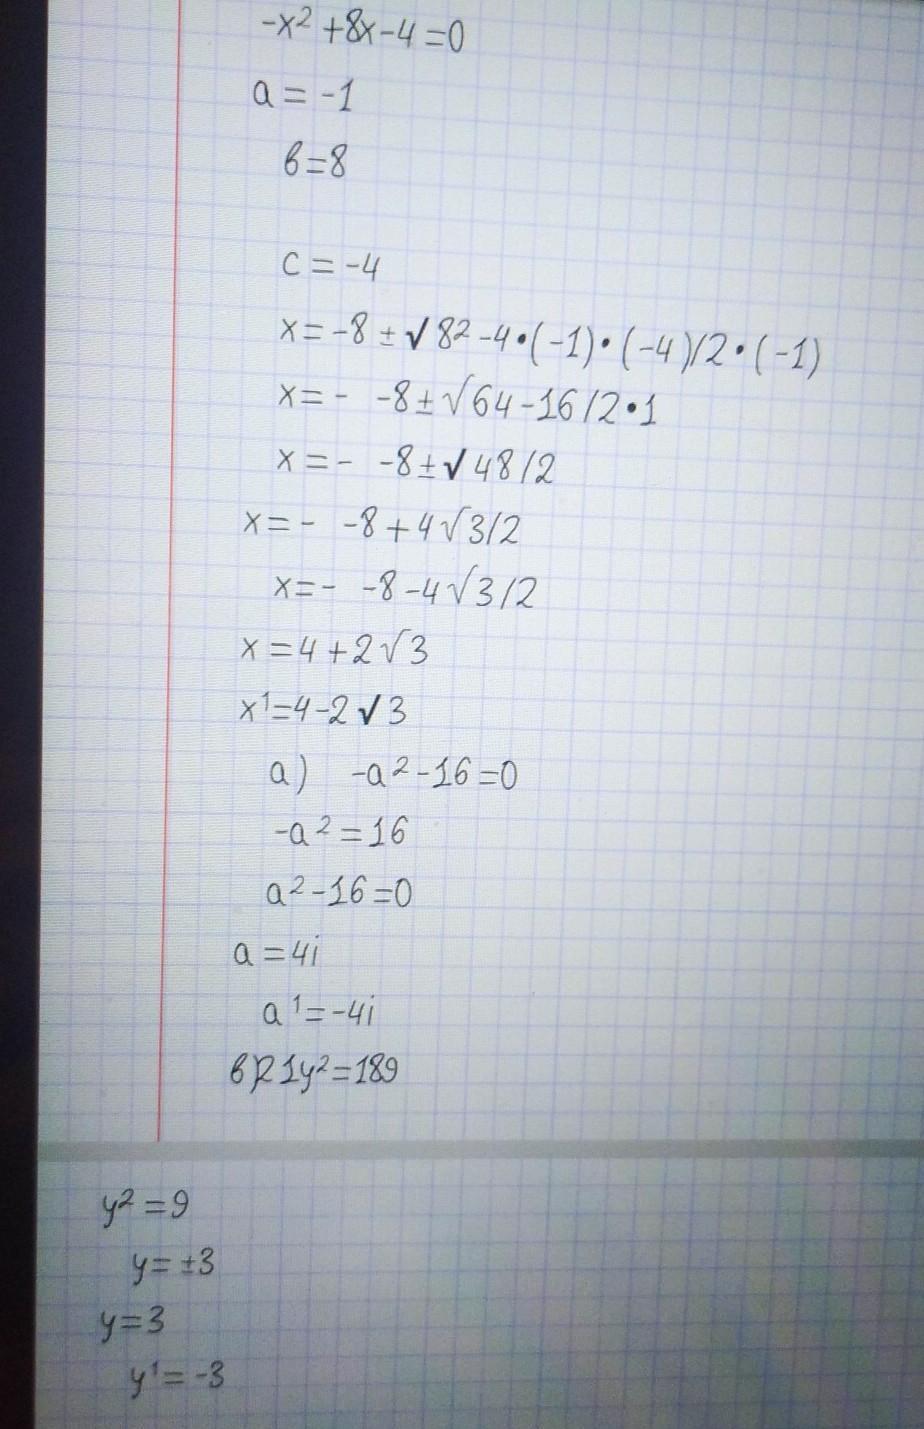 -x² +8x-4=0
a = -1
в=8
c = -4
x = -8 ± √ 8² -4•(-1)• (-4)/2•(-1)
x = - -8±√64-16/2•1
x = - -8±√48/2
x = - -8+4√3/2
x = - -8-4√3/2
x = 4+2√3
x¹=4-2√3
a) -a²-16=0
-a² = 16
a²-16=0
a = 4i
a¹=-4i
в)21y²=189
y² = 9
y= ±3
y=3
y¹= -3